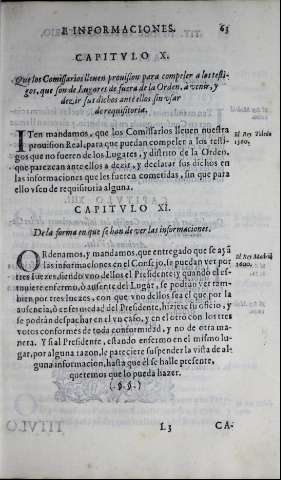 E INFORMACIONES. 63
CAPITVLO X.
Que los Comissarios lleuen prouision para compeler a los testi-
gos, que son de Lugares de fuera de la Orden, a venir, y
dezir sus dichos ante ellos sin vsar
de requisitoria.
ITen mandamos, que los Comissarios lleuen nuestra
prouision Real, para que puedan compeler a los testi-
gos que no fueren de los Lugares, y distrito de la Orden,
que parezcan ante ellos a dezir, y declarar sus dichos en
las informaciones que les fueren cometidas, sin que para
ello vsen de requisitoria alguna.
El Rey Toledo
1560.
CAPITVLO XI.
De la forma en que se han de ver las informaciones.
ORdenamos, y mandamos, que entregado que se ayã
las informaciones en el Consejo, se puedan ver por
tres Iuezes, siendo vno dellos el Presidente: y quando el es-
tuuiere enfermo, ò ausente del Lugar, se podràn ver tam-
bien por tres Iuezes, con que vno dellos sea el que por la
ausencia, ò enfermedad del Presidente, hiziere su oficio, y
se podràn despachar en el vn caso, y en el otro con los tres
votos conformes de toda conformidad, y no de otra ma-
nera. Y si al Presidente, estando enfermo en el mismo lu-
gar, por alguna razon, le pareciere suspender la vista de al-
guna informacion, hasta que èl se halle presente,
queremos que lo pueda hazer.
(.§§.)
El Rey Madrid
1600.
L3 CA-